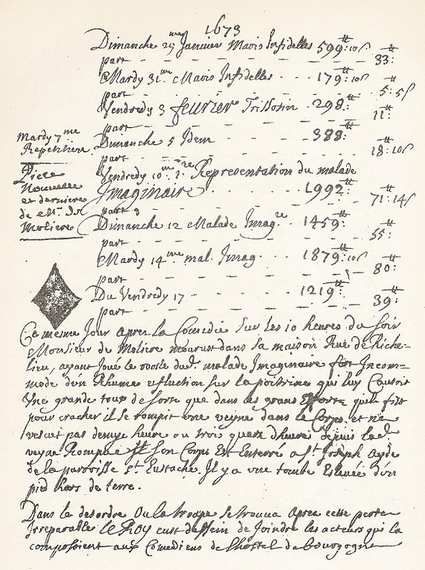 1673
Dimanche 29 Janvier Maris Infidelles 599:10
part 33:
Mardy 31 me Maris Infidelles 179:10
part 5:5
Vendredy 3 feurier Trissotin 298:
part 11:
Dimanche 5 Idem 388:
part 18:10
Mardy 7 me
Repetition
Vendredy 10. 1. re Representation du malade
Imaginaire 1992
part 71:14
Piece
Nouuelle
et derniere
de Mr. De
Moliere
Dimanche 12 Malade Imag re 1459
part 55:
Mardy 14 me mal. Imag 1879:10
part 80:
Du Vendredy 17 1219
part 39:
Ce mesme Jour apres la Comedie Sur les 10 heures du Soir
Monsieur de Moliere mourust dans sa maison Rue de Riche-
lieu, ayant Joué le roosle dud. malade Imaginaire fort Incom-
modé d'un Rhume et fluction sur la poitrine qui luy Causoit
Une grande toux de sorte que dans les grans Efforts qu'il fist
pour cracher il se rompit une veyne dans le Corps et ne
vescut pas demye heure ou trois quarts d'heure depuis lad.
veyne Rompüe Son Corps Est Enterré a St Joseph Ayde
de la parroisse St Eustache. Il y a vne tombe Esleuée d'vn
pied hors de terre.
Dans le desordre Ou la troupe se trouua Apres cette perte
Irreparable le ROY eust dessein de Joindre les acteurs qui la
composoient aux Comediens de l'hostel de bourgogne